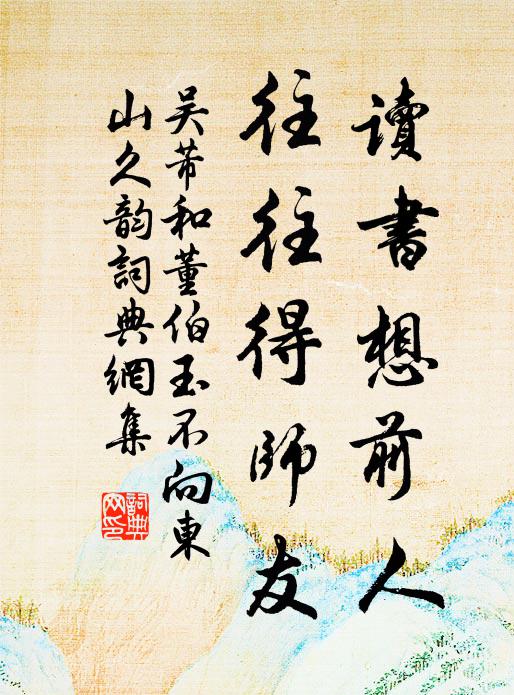 讀書想前人
往往得師友
吳芾和董伯玉不向東
山久韵詞典網集
詞典網印